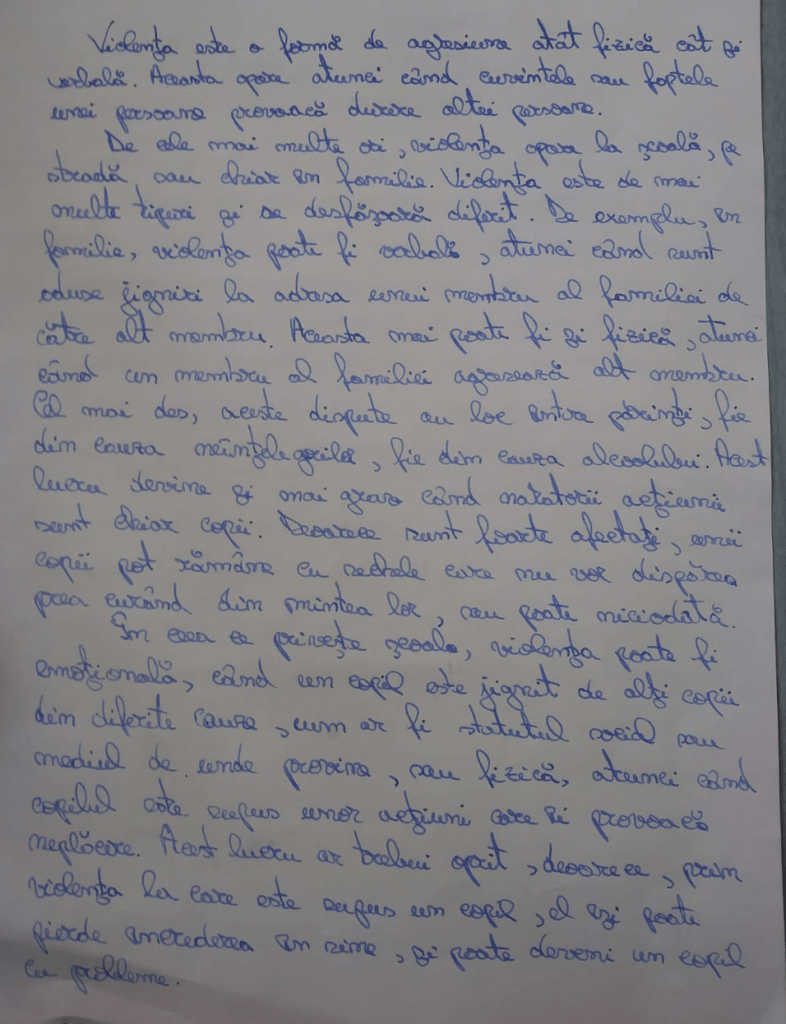 Violența este o formă de agresiune atât fizică cât și
verbală. Aceasta apare atunci când cuvintele sau faptele
unei persoane provoacă durere altei persoane.
De cele mai multe ori, violența apare la școală, pe
stradă sau chiar în familie. Violența este de mai
multe tipuri și se desfășoară diferit. De exemplu, în
familie, violența poate fi verbală, atunci când sunt
aduse jigniri la adresa unui membru al familiei de
către alt membru. Aceasta mai poate fi și fizică, atunci
când un membru al familiei agresează alt membru.
Cel mai des, aceste dispute au loc între părinți, fie
din cauza neînțelegerilor, fie din cauza alcoolului. Acest
lucru devine și mai grav când martorii acțiunii
sunt chiar copii. Deoarece sunt foarte afectați, unii
copii pot rămâne cu sechele care nu vor dispărea
prea curând din mintea lor, sau poate niciodată.
În ceea ce privește școala, violența poate fi
emoțională, când un copil este jignit de alți copii
din diferite cauze, cum ar fi statutul social sau
mediul de unde provine, sau fizică, atunci când
copilul este supus unor acțiuni care îi provoacă
neplăcere. Acest lucru ar trebui oprit, deoarece, prin
violența la care este supus un copil, el își poate
pierde încrederea în sine, și poate deveni un copil
cu probleme.